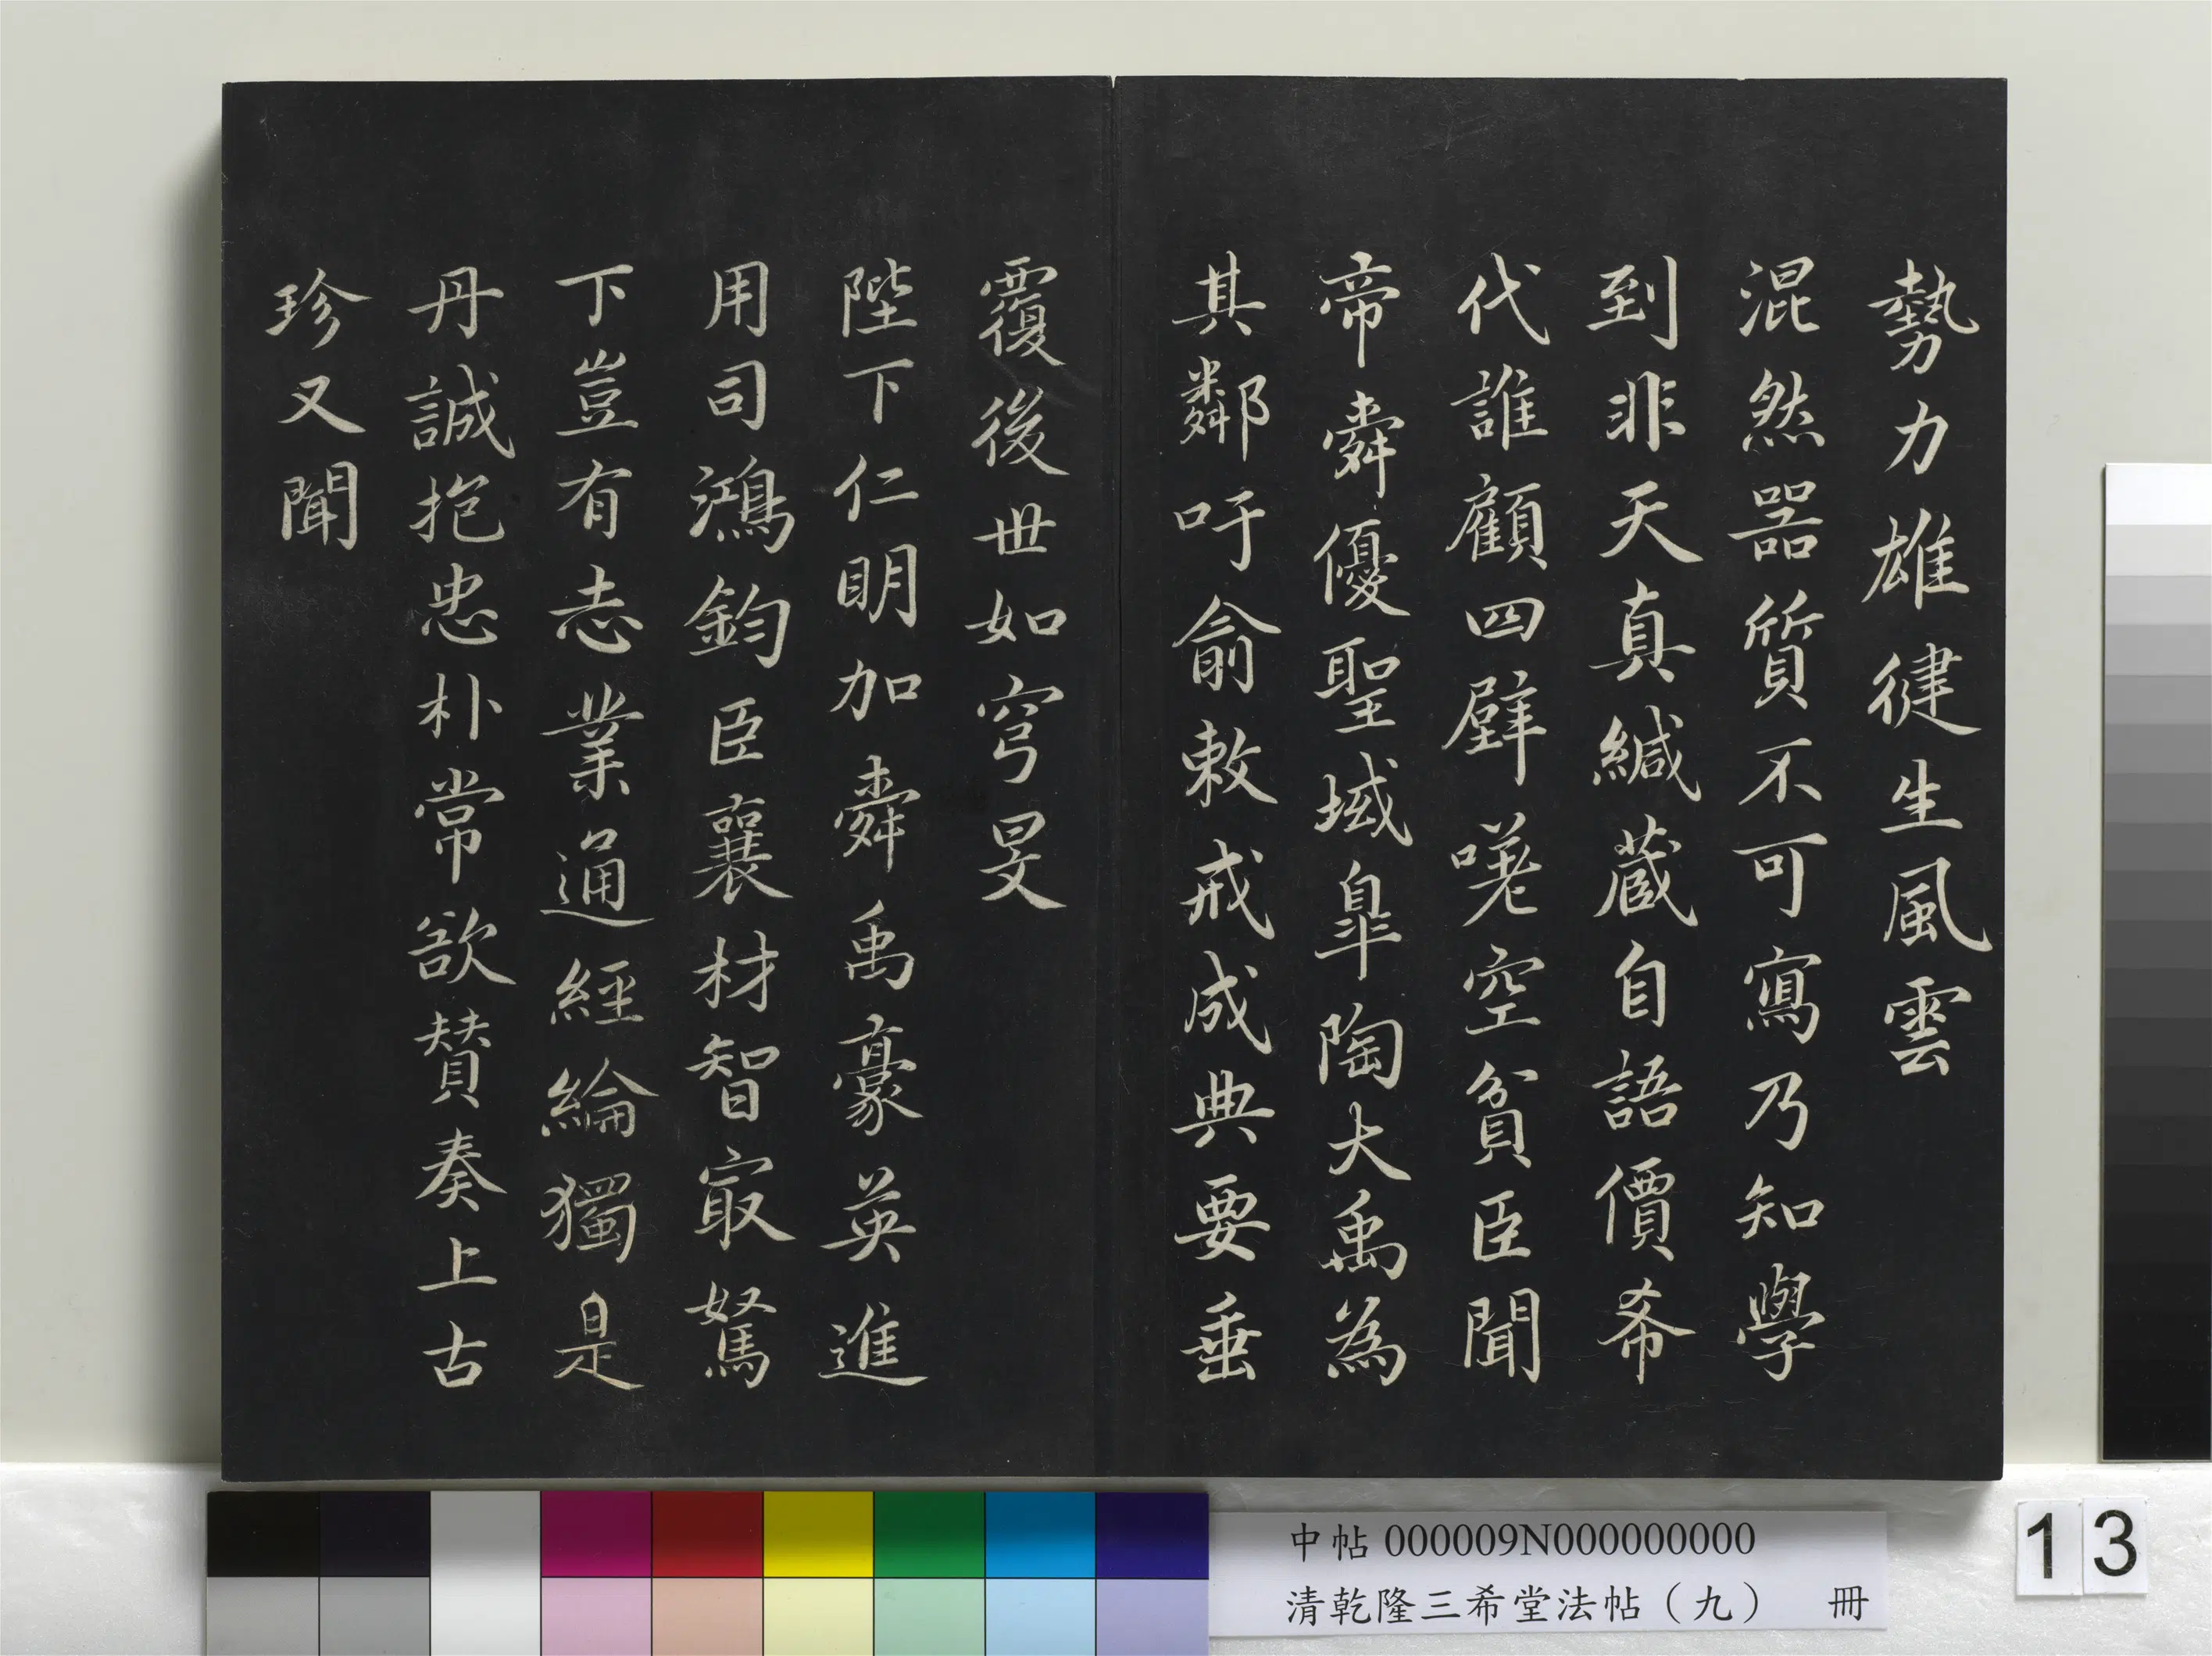 勢力雄健生風雲
混然器質不可寫乃知學
到非天真緘藏自語價希
代誰顧四壁嗟空貧臣聞
帝舜優聖域皐陶大禹為
其鄰吁俞敕戒成典要垂
覆後世如穹旻
陛下仁明加舜禹豪英進
用司鴻鈞臣襄材智最駑
下豈有志業通經綸獨是
丹誠抱忠朴常欲賛奏上古
珍又聞
中帖 000009N000000000
清乾隆三希堂法帖（九） 冊
13